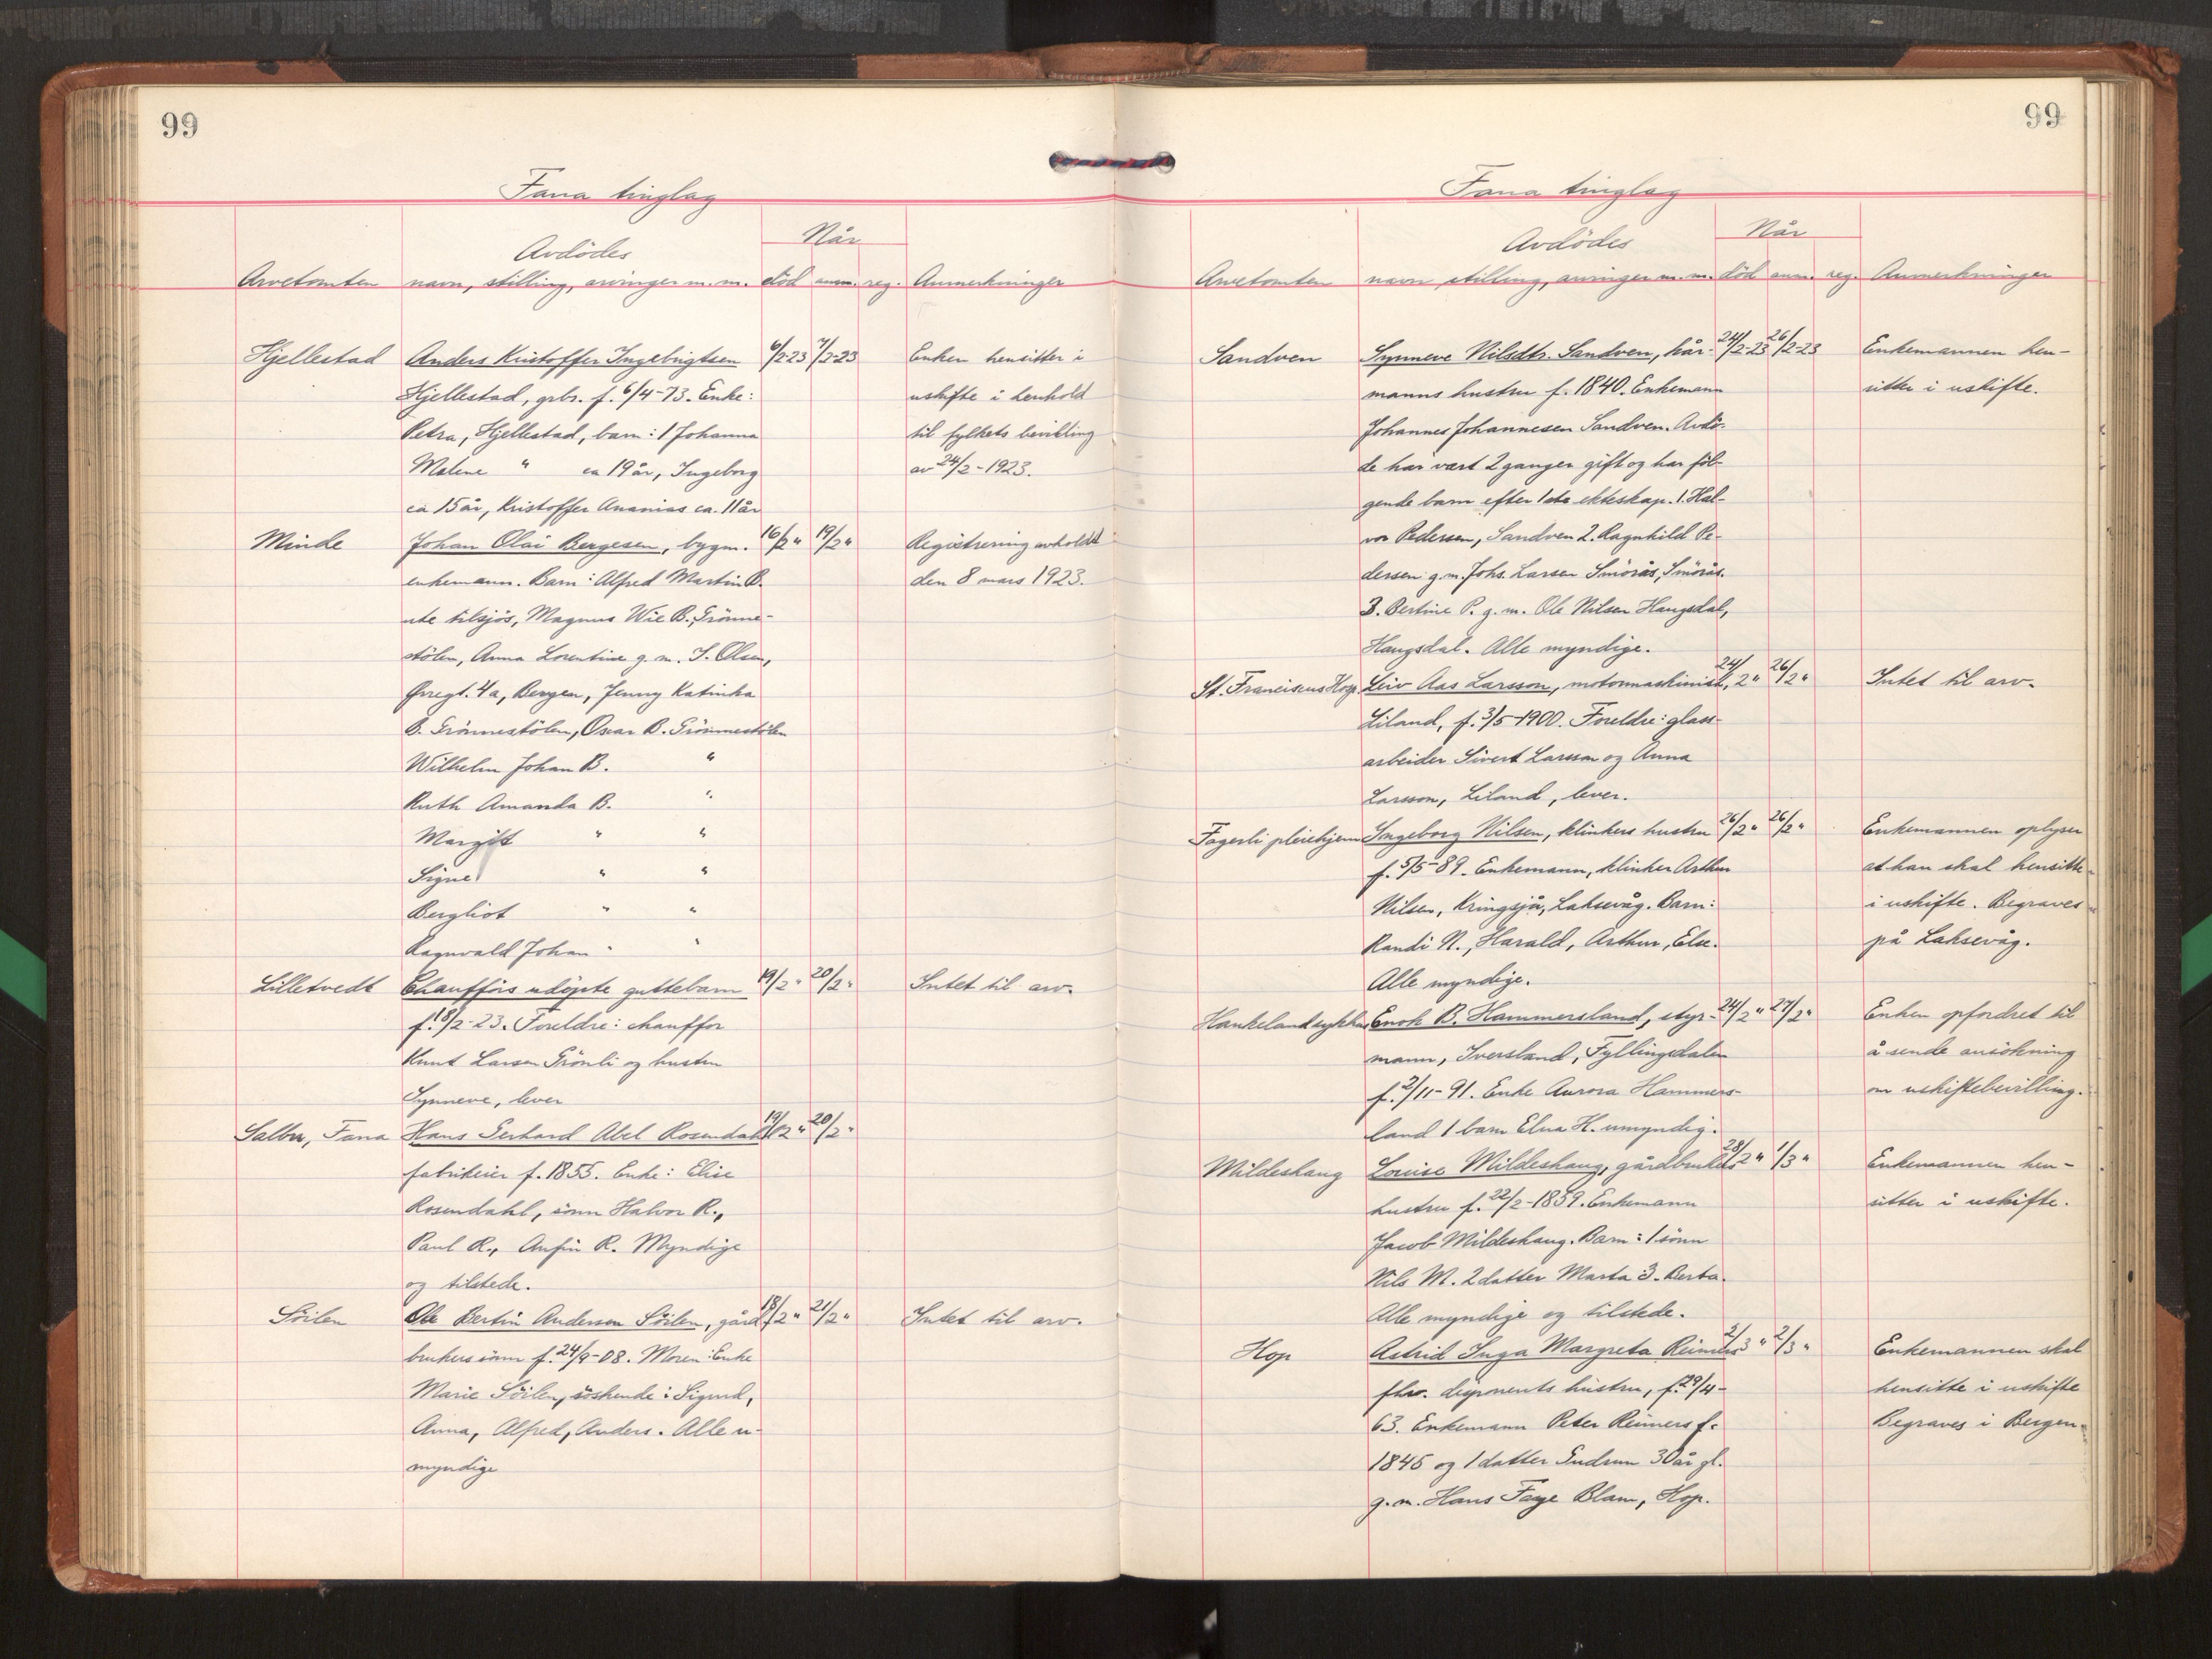 99
Fana tinglag
Avdödes
Når
Arvetomten navn, stilling, arvinger m. m. död anm. reg. Anmerkninger
Hjellestad Anders Kristoffer Ingebrigtsen 6/2-23 7/2-23 Enken hensitter i
Hjellestad, grbr. f. 6/4-73. Enke: uskifte i henhold
Petra, Hjellestad, barn: 1 Johanna til fylkets bevilling
Malene " ca 19 år, Ingeborg av 24/2-1923.
ca 15 år, Kristoffer Ananias ca. 11 år
Minde Johan Olai Bergesen, bygm. 16/2 " 19/2 " Registrering avholdt
enkemann. Barn: Alfred Martin B. den 8 mars 1923.
ute tilsjös, Magnus Wie B., Grönne-
stölen, Anna Lorentine g. m. J. Olsen,
4a, Bergen, Jenny Katinka
B. Grönnestölen, Oscar B. Grönnestölen
Wilhelm Johan B. "
Ruth Amanda B. "
Margit " "
Signe " "
Bergliot " "
Ragnvald Johan " "
Lilletvedt Chaufförs udöpte guttebarn 19/2 " 20/2 " Intet til arv.
f. 18/2-23. Foreldre: chauffør
Knut Larsen Grönli og hustru
Synneve, lever
Salbu, Fana Hans Gerhard Abel Rosendahl 19/2 " 20/2 "
fabrikeier f. 1855. Enke: Elise
Rosendahl, sönn Halvor R.,
Paul R., Anfin R. Myndige
og tilstede.
Söilen Ole Bertin Andersen Söilen, gård- 18/2 " 21/2 " Intet til arv.
brukers sönn f. 24/9-08. Moren: Enke
Marie Söilen, söskende: Sigurd,
Anna, Alfred, Anders. Alle u-
myndige
99
Fana tinglag
Avdödes
Når
Arvetomten navn, stilling, arvinger m. m. död anm. reg. Anmerkninger
Sandven Synneve Nilsdtr. Sandven, kår- 24/2-23 26/2-23 Enkemannen hen-
manns hustru f. 1840. Enkemann sitter i uskifte.
Johannes Johannesen Sandven. Avdö-
de har vært 2 ganger gift og har föl-
gende barn efter 1ste ekteskap. 1. Hal-
vor Pedersen, Sandven 2. Ragnhild Pe-
dersen g. m. Johs. Larsen Smörås, Smörås.
3. Bertine P. g. m. Ole Nilsen Haugsdal,
Haugsdal. Alle myndige.
St. Franciscus Hosp. Leiv Aas Larsson, motormaskinist, 24/2 " 26/2 " Intet til arv.
Liland, f. 3/5-1900. Foreldre: glass-
arbeider Sivert Larsson og Anna
Larsson, Liland, lever.
Fagerli pleiehjem Ingeborg Nilsen, klinkers hustru 26/2 " 26/2 " Enkemannen oplyser
f. 5/5-89. Enkemann, klinker Arthur at han skal hensitte
Nilsen, Kringsjå, Laksevåg. Barn: i uskifte. Begraves
Randi N., Harald, Arthur, Else. på Laksevåg.
Alle myndige.
Haukeland sykehus Enok B. Hammersland, styr- 24/2 " 27/2 " Enken opfordret til
mann, Iversland, Fyllingsdalen å sende ansökning
f. 2/11-91. Enke Aurora Hammers- om uskiftebevilling.
land 1 barn Elna H. umyndig.
Mildeshaug Louise Mildeshaug, gårdbrukers 28/2 " 1/3 " Enkemannen hen-
hustru f. 22/2-1859. Enkemann sitter i uskifte.
Jacob Mildeshaug. Barn: 1 sönn
Nils M. 2 datter Marta 3. Berta.
Alle myndige og tilstede.
Hop Astrid Inga Margreta Reimers 2/3 " 2/3 " Enkemannen skal
fhv. disponents hustru, f. 29/4- hensitte i uskifte
63. Enkemann Peter Reimers f. Begraves i Bergen.
1846 og 1 datter Gudrun 30 år gl.
g. m. Hans Faye Blam, Hop.